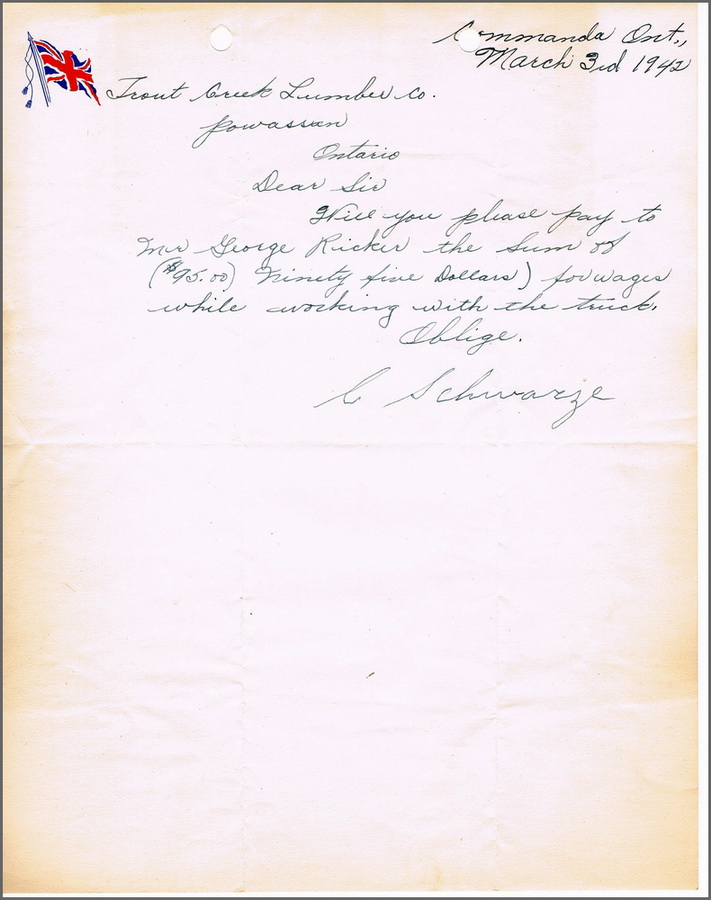 Commanda Ont.,
March 3rd 1942
Trout Creek Lumber Co.
Powassan
Ontario
Dear Sir
Will you please pay to
Mr George Ricker the Sum of
($95.00) Ninety five Dollars) for wages
while working with the truck.
Oblige.
C Schwarze